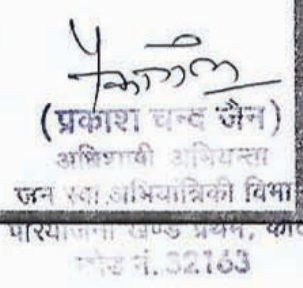 (प्रकाश चन्द जैन)
अधिशाषी अभियन्ता
जन स्वा.अभियांत्रिकी विभा
परियोजना खण्ड प्रथम,
कोड नं. 32163